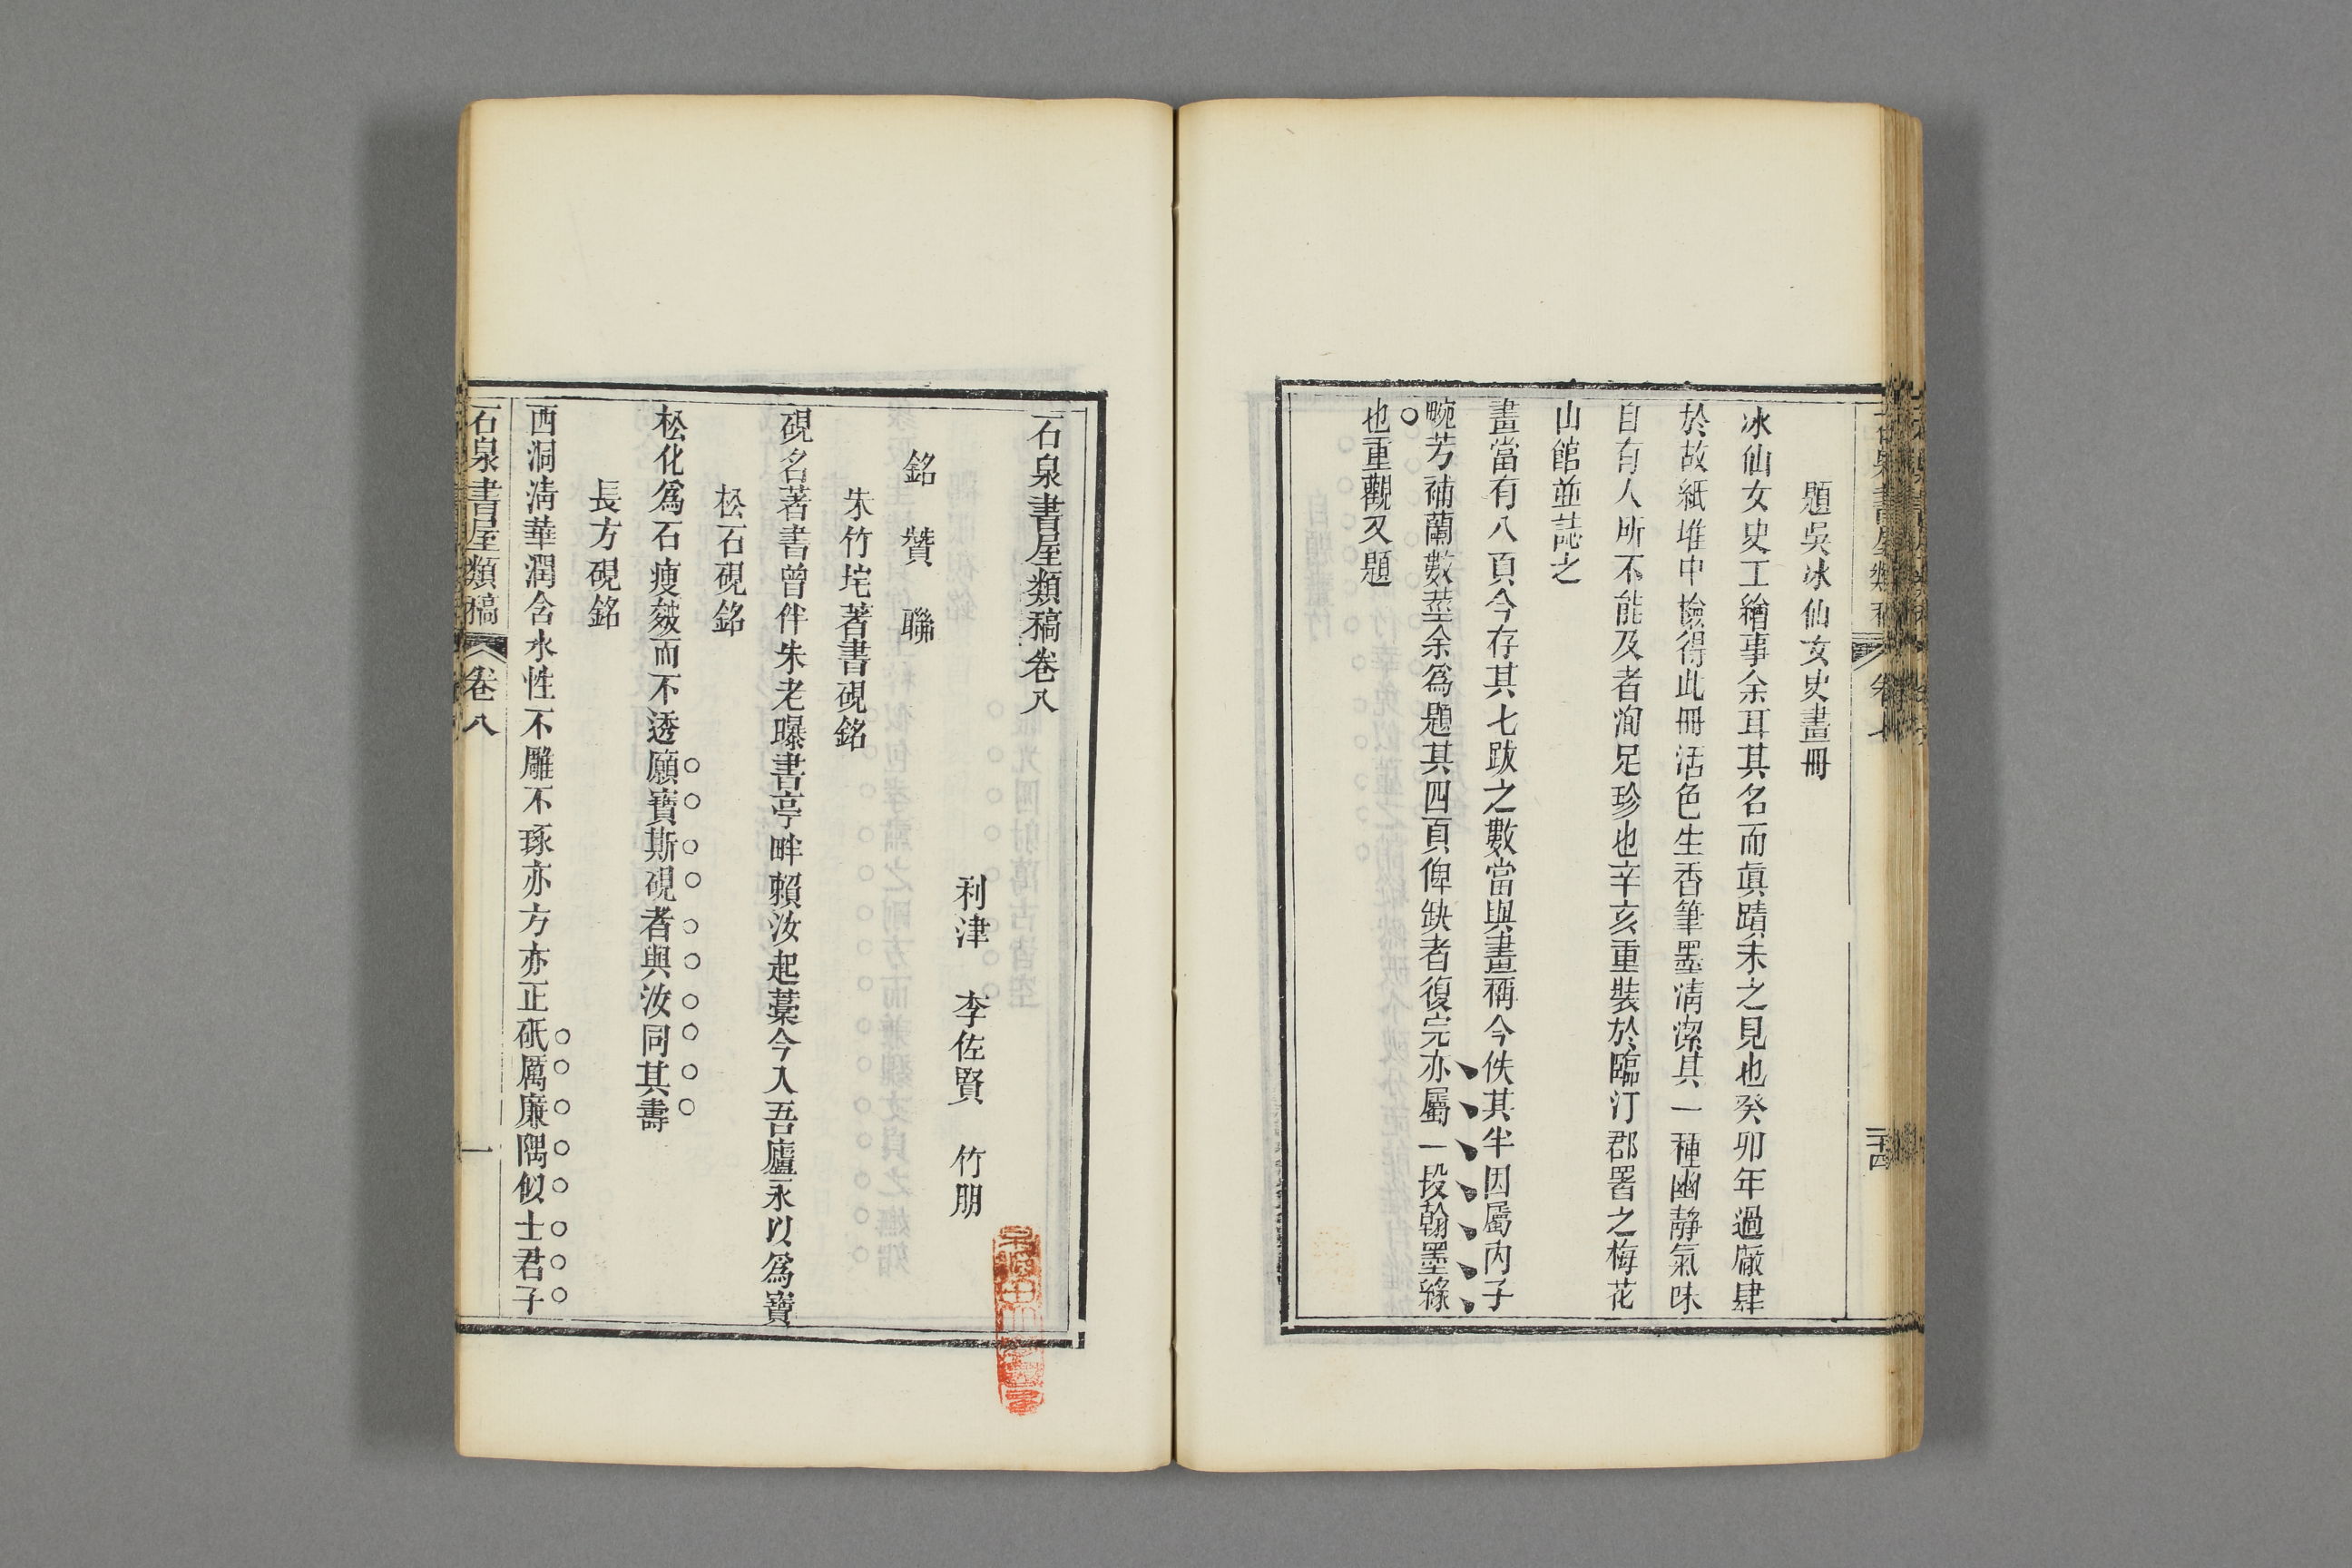 題吳冰仙女史畫冊
冰仙女史工繪事余耳其名而眞蹟未之見也癸卯年過廠肆
於故紙堆中檢得此冊活色生香筆墨淸潔其一種幽靜氣味
自有人所不能及者洵足珍也辛亥重裝於臨汀郡署之梅花
山館並誌之
畫當有八頁今存其七跋之數當與畫稱今佚其半因屬內子
畹芳補蘭數莖余爲題其四頁俾缺者復完亦屬一段翰墨緣
也重觀又題
石泉書屋類稿卷八
利津 李佐賢 竹朋
銘 贊 聯
朱竹垞著書硯銘
硯名著書曾伴朱老曝書亭畔賴汝起藁今入吾廬永以爲寶
松石硯銘
松化爲石瘦皴而不透願寶斯硯者與汝同其壽
長方硯銘
西洞淸華潤含水性不雕不琢亦方亦正砥厲廉隅似士君子
石泉書屋類稿 卷八 一